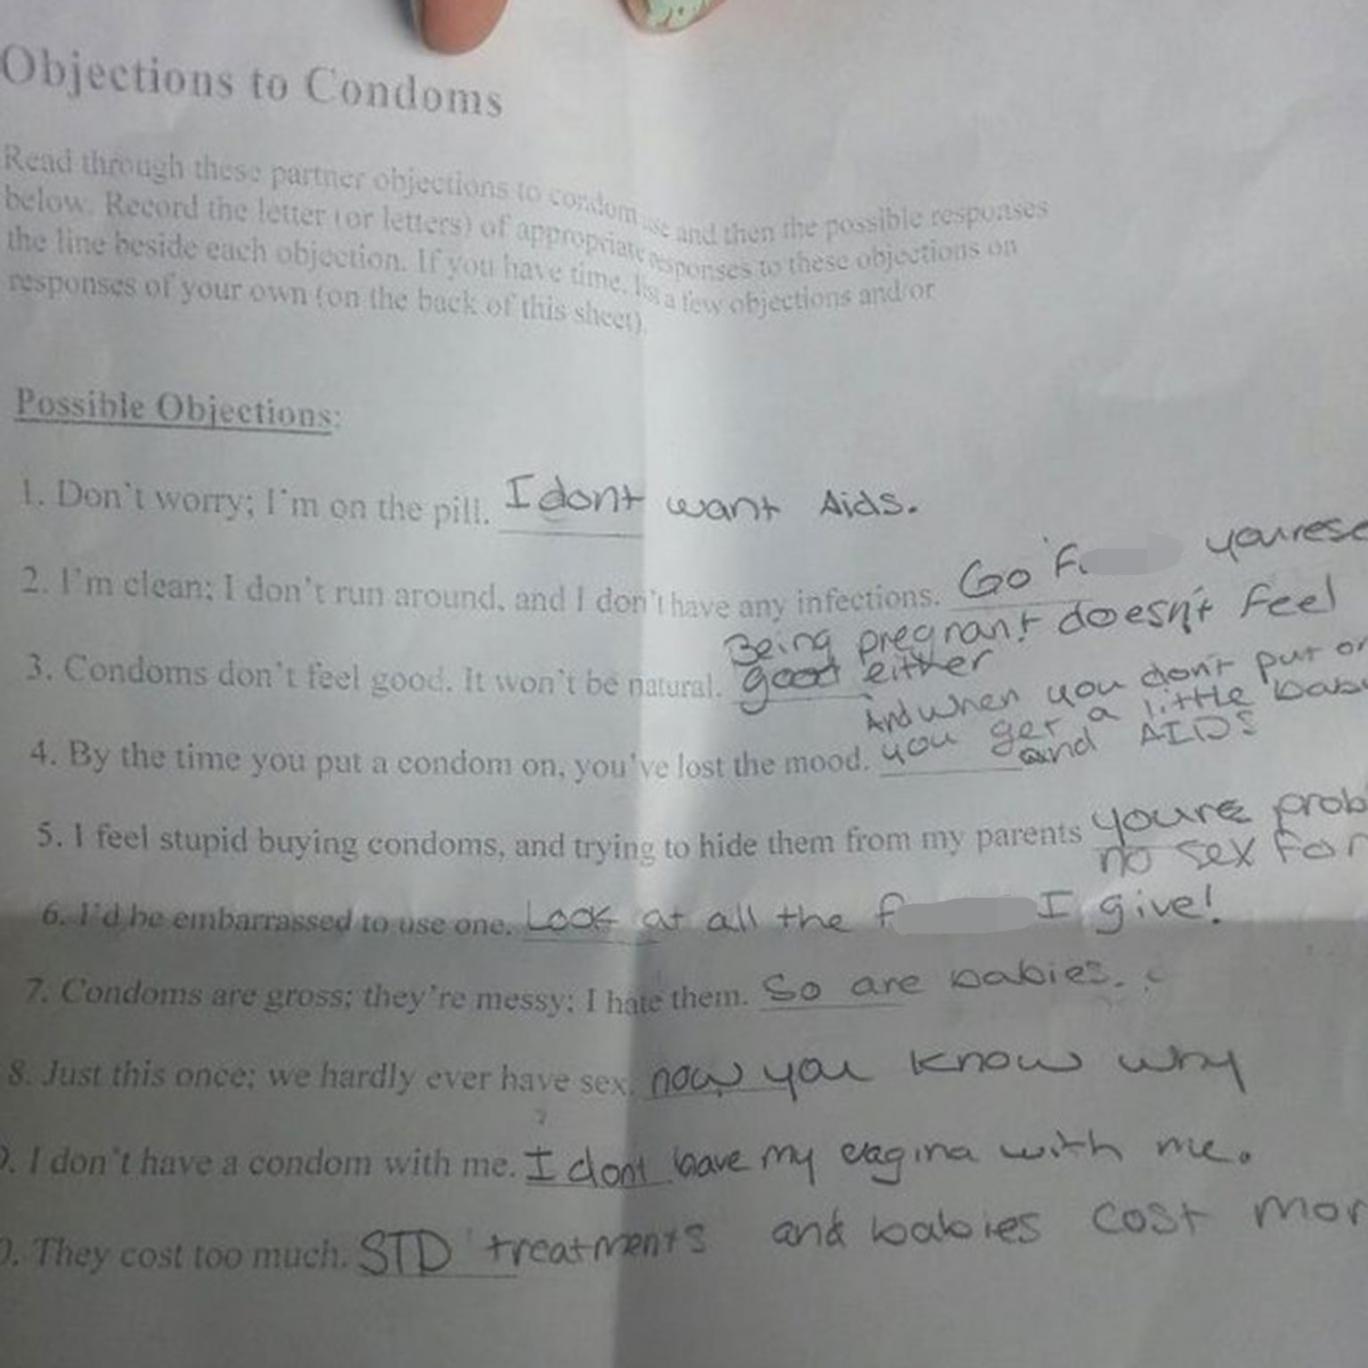 Objections to Condoms
Read through these partner objections to condom use and then the possible responses
below. Record the letter (or letters) of appropriate responses to these objections on
the line beside each objection. If you have time, list a few objections and/or
responses of your own (on the back of this sheet).
Possible Objections:
1. Don't worry; I'm on the pill. I dont want Aids.
2. I'm clean; I don't run around, and I don't have any infections. Go F
3. Condoms don't feel good. It won't be natural. Being pregnant doesn't feel
good either
4. By the time you put a condom on, you've lost the mood. And when you don't put
you get a little
and AIDS
5. I feel stupid buying condoms, and trying to hide them from my parents youre
no sex for
6. I'd be embarrassed to use one. Look at all the f I give!
7. Condoms are gross; they're messy; I hate them. So are babies.
8. Just this once; we hardly ever have sex. now you know why
. I don't have a condom with me. I dont have my vagina with me.
. They cost too much. STD treatments and babies cost